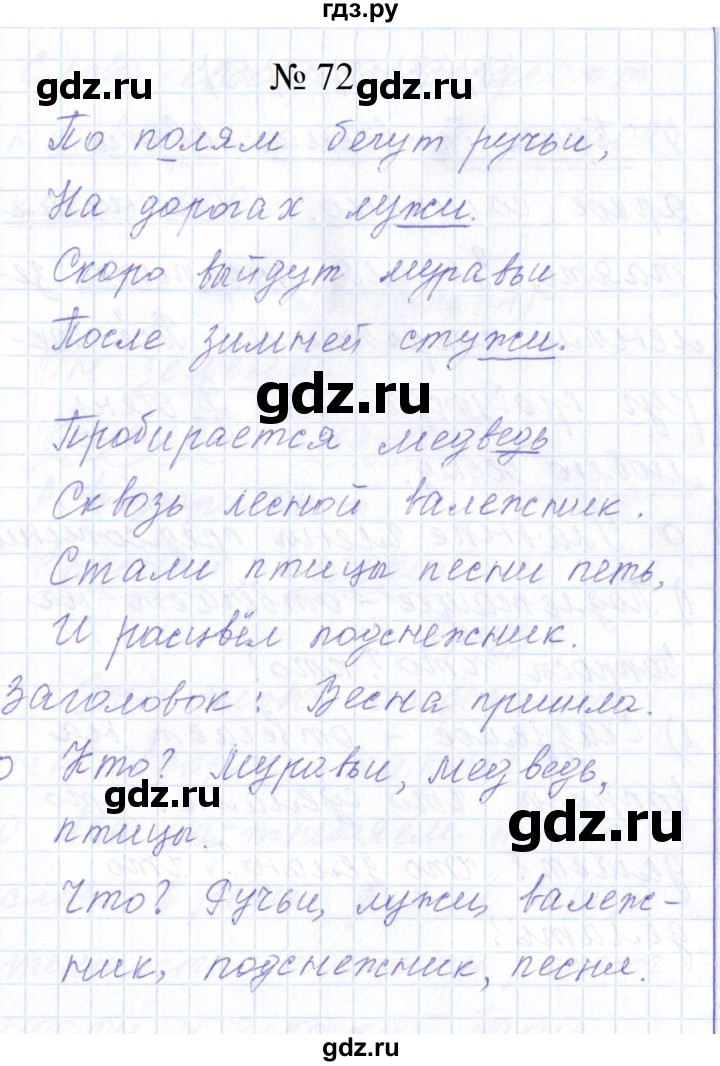 гдз.ру
№ 72
gdz.ru gdz.ru
По полям бегут ручьи,
На дорогах лужи.
Скоро выйдут муравьи
После зимней стужи.
gdz.ru
Пробирается медведь
Сквозь лесной валежник.
Стали птицы песни петь,
И расцвёл подснежник.
Заголовок: Весна пришла.
Кто? Муравьи, медведь,
gdz.ru gdz.ru
птицы.
Что? Ручьи, лужи, валеж-
ник, подснежник, песни.
gdz.ru